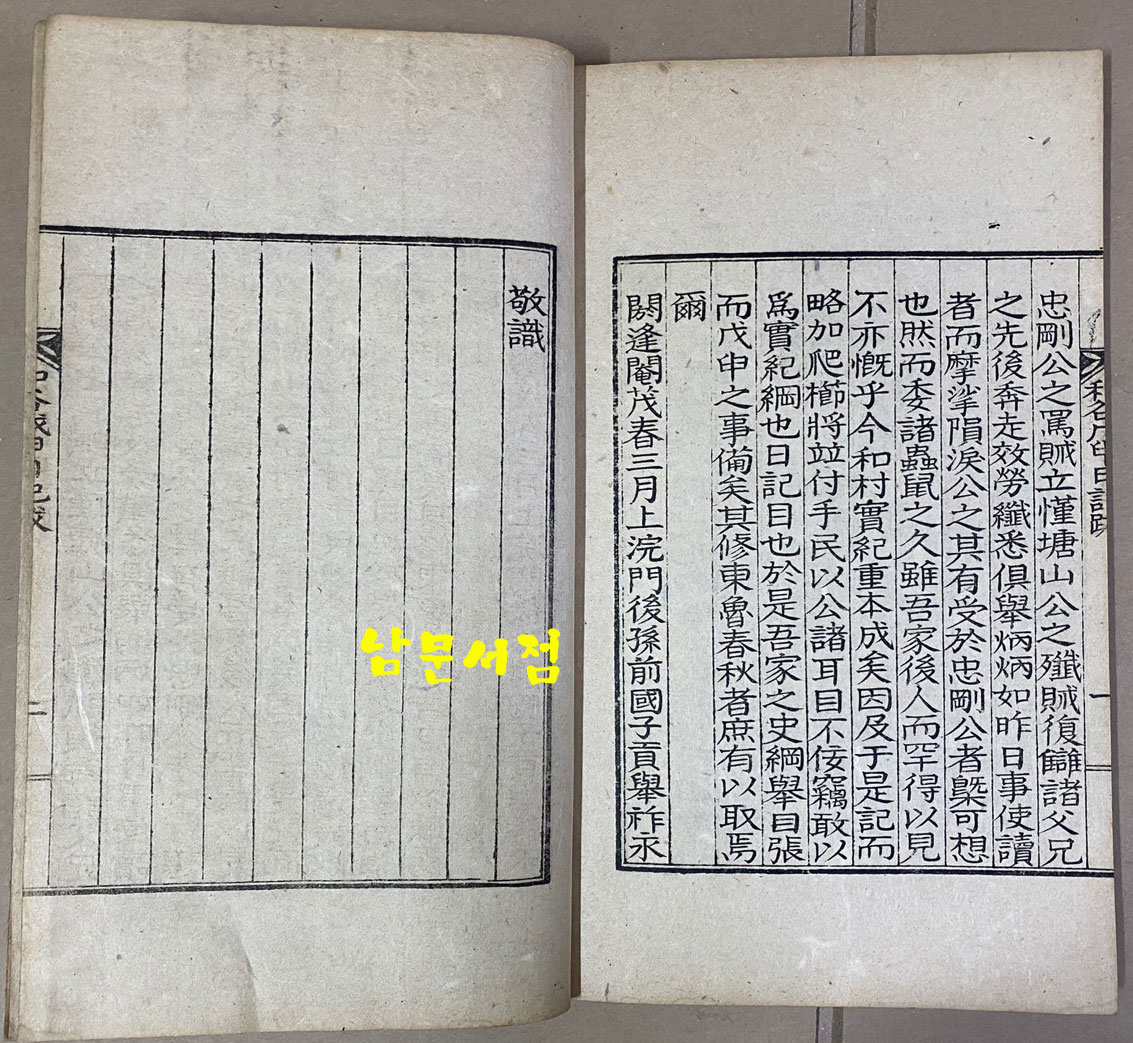 忠剛公之罵賊立慬塘山公之殲賊復讎諸父兄
之先後奔走效勞纖悉俱舉炳炳如昨日事使讀
者而摩挲隕淚公之其有受於忠剛公者槩可想
也然而委諸蟲鼠之久雖吾家後人而罕得以見
不亦慨乎今和村實紀重本成矣因及于是記而
略加爬櫛將並付手民以公諸耳目不佞竊敢以
爲實紀綱也日記目也於是吾家之史綱舉目張
而戊申之事備矣其修東魯春秋者庶有以取焉
爾
閼逢閹茂春三月上浣門後孫前國子貢舉祚永
敬識
一
二
남문서점